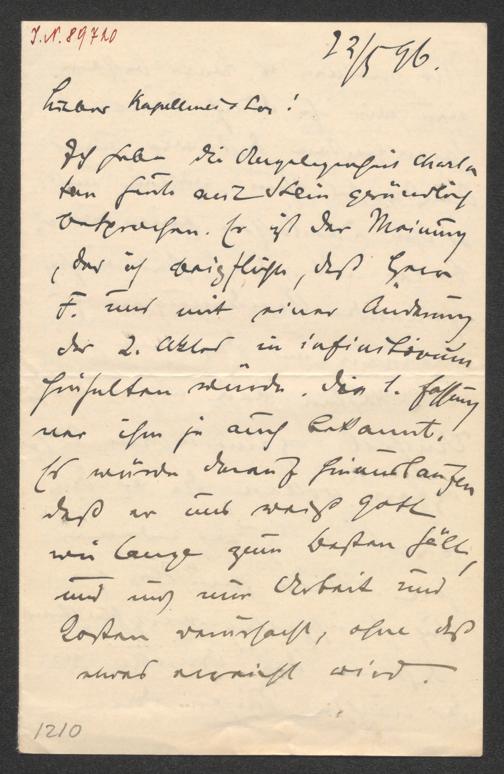 I.N. 89720
23/5 96.
Lieber Kapellmeister!
Ich habe die Angelegenheit Charla
tan heute mit Stein gründlich
besprochen. Er ist der Meinung
, der ich beipflichte, daß Herr
F. uns mit einer Änderung
der 2. Aktes in infinitivum
hinhalten würde. Die 1. Fassung
war ihm ja auch bekannt.
Er würde darauf hinauslaufen
daß er uns weiß Gott
wie lange zum besten hält,
und uns nur Arbeit und
Kosten verursacht, ohne daß
etwas erreicht wird.
1210